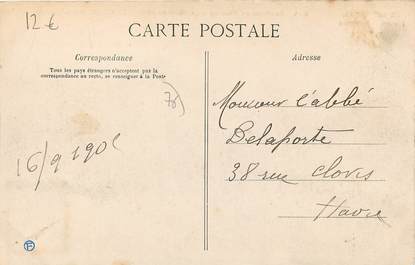 12€
CARTE POSTALE
Correspondance
Tous les pays étrangers n'acceptent pas la
correspondance au recto, se renseigner à la Poste
Adresse
Monsieur l'abbé
Delaporte
38 rue Clovis
Havre
16/9 190